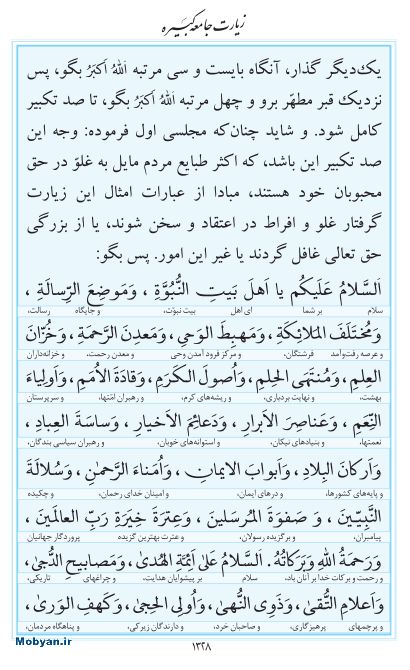 زیارت جامعه کبیره
یک‌دیگر گذار، آنگاه بایست و سی مرتبه اَللهُ اَکبَرُ بگو، پس
نزدیک قبر مطهّر برو و چهل مرتبه اَللهُ اَکبَرُ بگو، تا صد تکبیر
کامل شود. و شاید چنان‌که مجلسی اول فرموده: وجه این
صد تکبیر این باشد، که اکثر طبایع مردم مایل به غلوّ در حق
محبوبان خود هستند، مبادا از عبارات امثال این زیارت
گرفتار غلو و افراط در اعتقاد و سخن شوند، یا از بزرگی
حق تعالی غافل گردند یا غیر این امور. پس بگو:
اَلسَّلامُ عَلَیکُم یا اَهلَ بَیتِ النُّبُوَّةِ ، وَمَوضِعَ الرِّسالَةِ ،
سلام بر شما ای اهل بیت نبوّت، و جایگاه رسالت،
وَمُختَلَفَ المَلائِکَةِ ، وَمَهبِطَ الوَحیِ ، وَمَعدِنَ الرَّحمَةِ ، وَخُزّانَ
و عرصه رفت‌وآمد فرشتگان، و مرکز فرود آمدن وحی و معدن رحمت، و خزانه‌داران
العِلمِ ، وَمُنتَهَی الحِلمِ ، وَاُصولَ الکَرَمِ ، وَقادَةَ الاُمَمِ ، وَاَولِیاءَ
بهشت، و نهایت بردباری، و ریشه‌های کرم، و رهبران امّتها، و سرپرستان
النِّعَمِ ، وَعَناصِرَ الاَبرارِ ، وَدَعائِمَ الاَخیارِ ، وَساسَةَ العِبادِ ،
نعمتها، و بنیادهای نیکان، و استوانه‌های خوبان، و رهبران سیاسی بندگان،
وَاَرکانَ البِلادِ ، وَاَبوابَ الایمانِ ، وَاُمَناءَ الرَّحمٰنِ ، وَسُلالَةَ
و پایه‌های کشورها، و درهای ایمان، و امینان خدای رحمان، و چکیده
النَّبِیّینَ ، وَ صَفوَةَ المُرسَلینَ ، وَعِترَةَ خِیَرَةِ رَبِّ العالَمینَ ،
پیامبران، و برگزیده رسولان، و عترت بهترین گزیده پروردگار جهانیان
وَرَحمَةُ اللهِ وَبَرَکاتُهُ. اَلسَّلامُ عَلیٰ اَئِمَّةِ الهُدیٰ ، وَمَصابیحِ الدُّجیٰ ،
و رحمت و برکات خدا بر آنان باد، سلام بر پیشوایان هدایت، و چراغهای تاریکی،
وَاَعلامِ التُّقیٰ ، وَذَوِی النُّهیٰ ، وَاُولِی الحِجیٰ ، وَکَهفِ الوَریٰ ،
و پرچمهای پرهیزگاری، و صاحبان خرد، و دارندگان زیرکی، و پناهگاه مردمان،
۱۳۲۸
Mobyan.ir